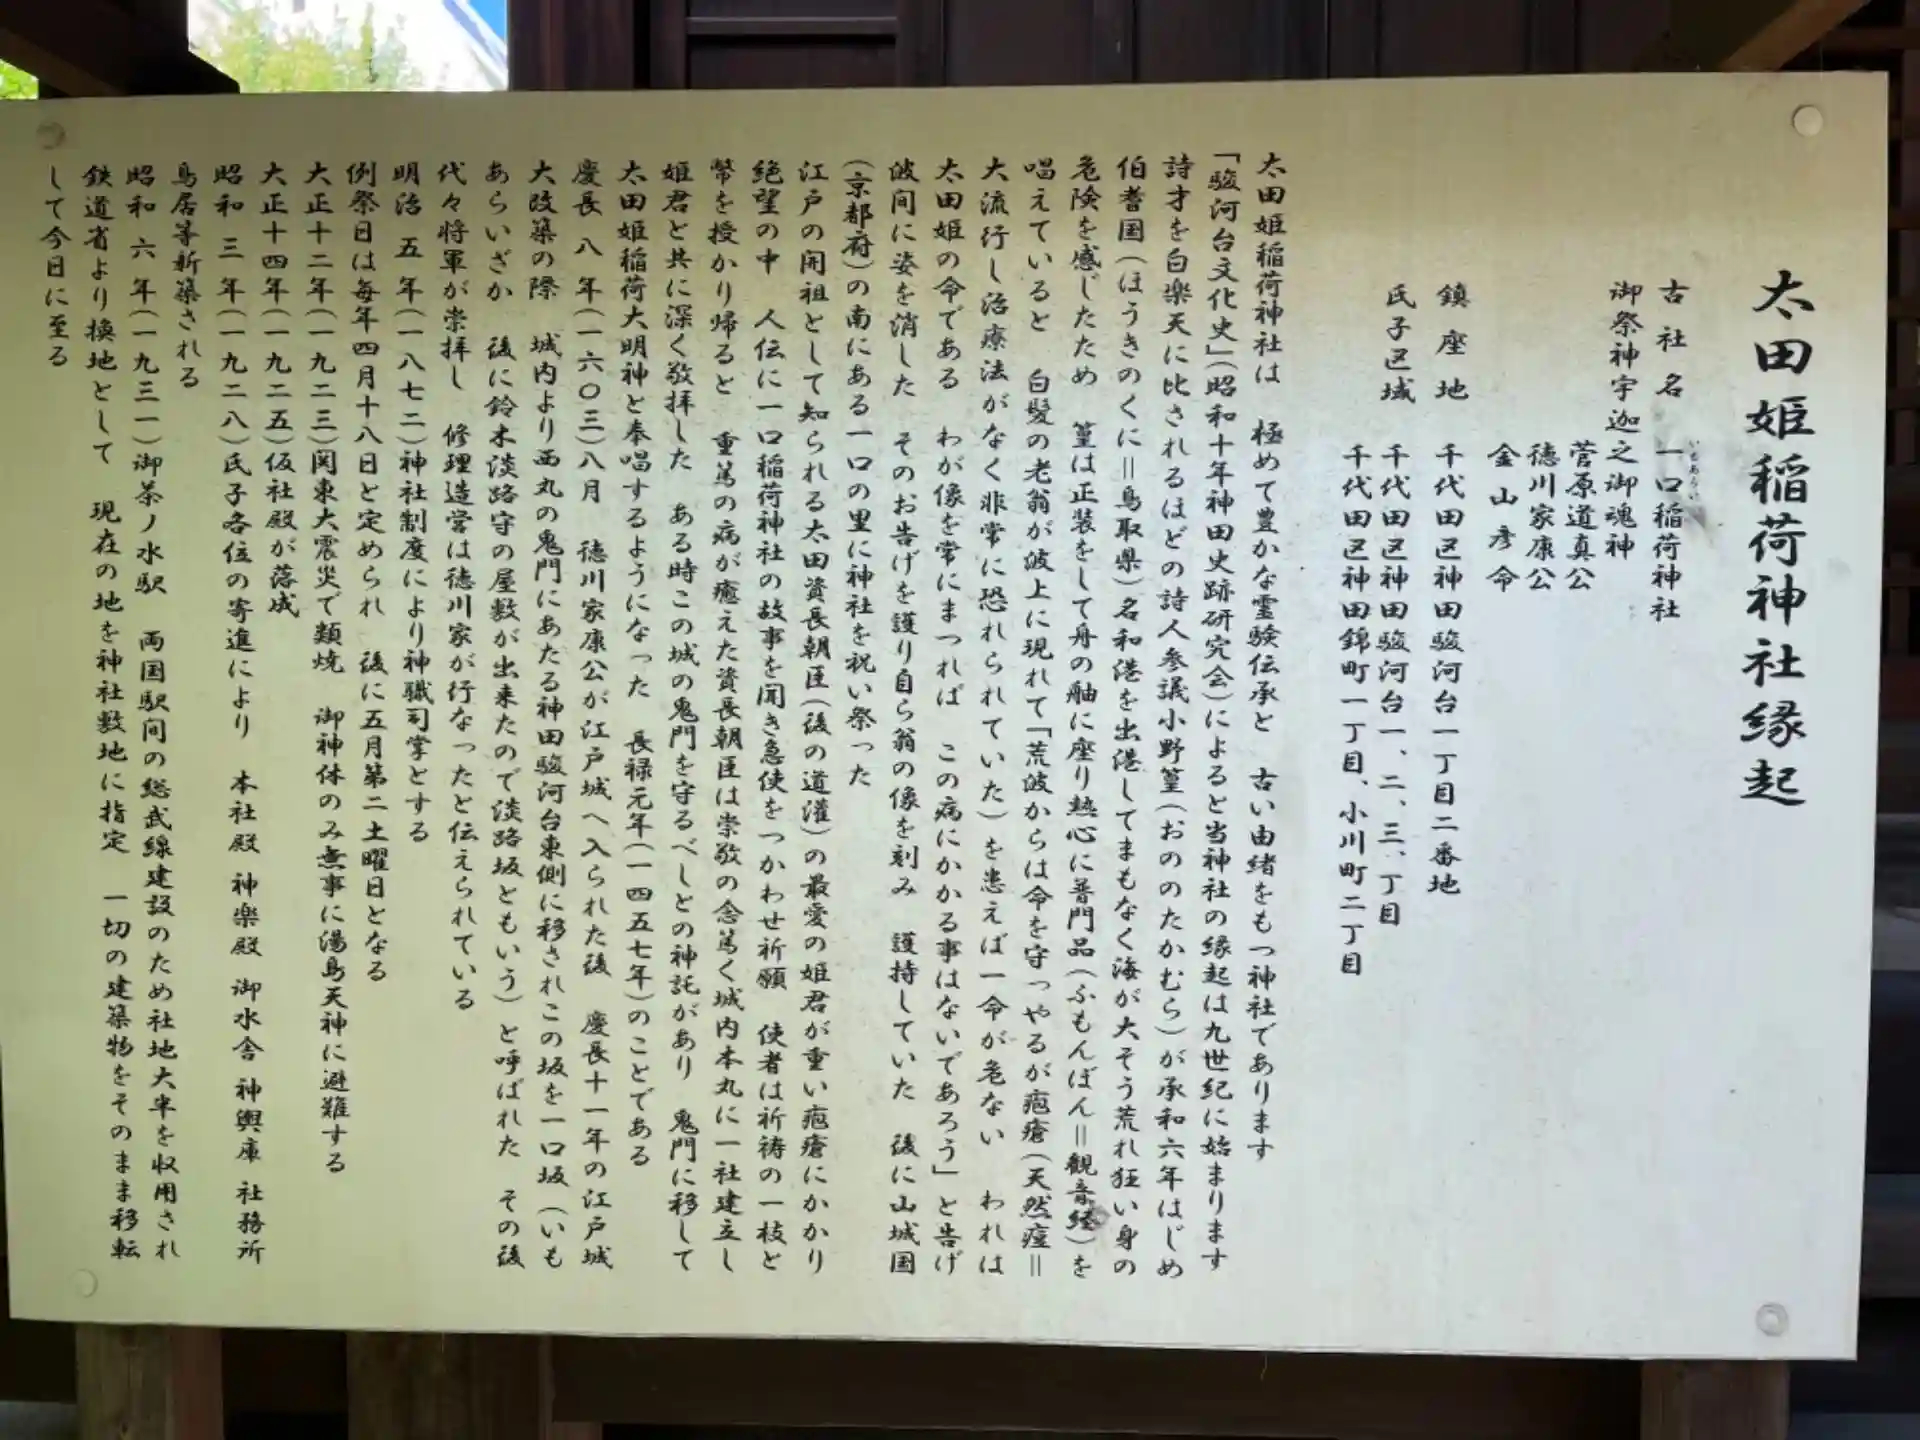 太田姫稲荷神社縁起
古社名 一口稲荷神社
いもあらい
御祭神 宇迦之御魂神
菅原道真公
徳川家康公
金山彦命
鎮座地 千代田区神田駿河台一丁目二番地
氏子区域 千代田区神田駿河台一、二、三、丁目
千代田区神田錦町一丁目、小川町二丁目
太田姫稲荷神社は 極めて豊かな霊験伝承と 古い由緒をもつ神社であります
「駿河台文化史」(昭和十年神田史跡研究会)によると当神社の縁起は九世紀に始まります
詩才を白楽天に比されるほどの詩人参議小野篁(おののたかむら)が承和六年はじめ
伯耆国(ほうきのくに＝鳥取県)名和港を出港してまもなく海が大そう荒れ狂い身の
危険を感じたため 篁は正装をして舟の舳に座り熱心に普門品(ふもんぼん＝観音経)を
唱えていると 白髪の老翁が波上に現れて「荒波からは命を守ってやるが疱瘡(天然痘＝
大流行し治療法がなく非常に恐れられていた)を患えば一命が危ない われは
太田姫の命である わが像を常にまつれば この病にかかる事はないであろう」と告げ
波間に姿を消した そのお告げを護り自ら翁の像を刻み 護持していた 後に山城国
(京都府)の南にある一口の里に神社を祝い祭った
江戸の開祖として知られる太田資長朝臣(後の道灌)の最愛の姫君が重い疱瘡にかかり
絶望の中 人伝に一口稲荷神社の故事を聞き急使をつかわせ祈願 使者は祈祷の一枝と
幣を授かり帰ると 重篤の病が癒えた資長朝臣は崇敬の念篤く城内本丸に一社建立し
姫君と共に深く敬拝した ある時この城の鬼門を守るべしとの神託があり 鬼門に移して
太田姫稲荷大明神と奉唱するようになった 長禄元年(一四五七年)のことである
慶長 八 年(一六〇三)八月 徳川家康公が江戸城へ入られた後 慶長十一年の江戸城
大改築の際 城内より西丸の鬼門にあたる神田駿河台東側に移されこの坂を一口坂(いも
あらいざか 後に鈴木淡路守の屋敷が出来たので淡路坂ともいう)と呼ばれた その後
代々将軍が崇拝し 修理造営は徳川家が行なったと伝えられている
明治 五 年(一八七二)神社制度により神職司掌とする
例祭日は毎年四月十八日と定められ 後に五月第二土曜日となる
大正十二年(一九二三)関東大震災で類焼 御神体のみ無事に湯島天神に避難する
大正十四年(一九二五)仮社殿が落成
昭和 三 年(一九二八)氏子各位の寄進により 本社殿 神楽殿 御水舎 神輿庫 社務所
鳥居等新築される
昭和 六 年(一九三一)御茶ノ水駅 両国駅間の総武線建設のため社地大半を収用され
鉄道省より換地として 現在の地を神社敷地に指定 一切の建築物をそのまま移転
して今日に至る